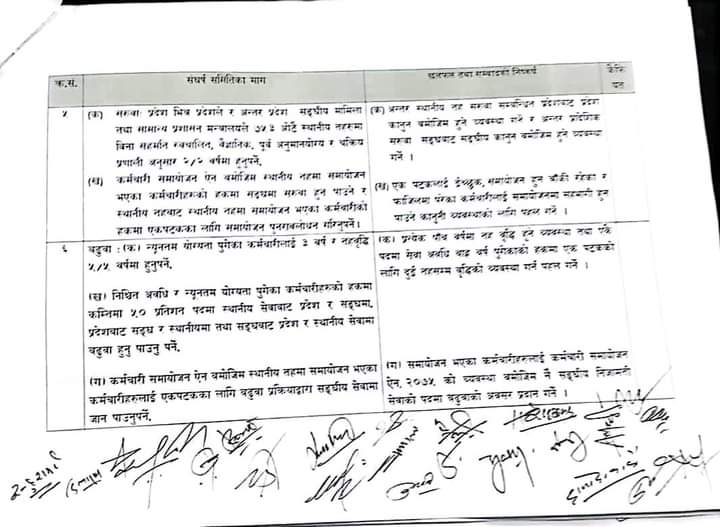 क.सं. संघर्ष समितिका माग छलफल तथा सम्वादको निष्कर्ष कैफियत
५
(क) सरुवाः प्रदेश भित्र प्रदेशले र अन्तर प्रदेश सङ्घीय मामिला
तथा सामान्य प्रशासन मन्त्रालयले ७५३ ओटै स्थानीय तहरुमा
विना सहमति स्वचालित, वैज्ञानिक, पूर्व अनुमानयोग्य र चक्रिय
प्रणाली अनुसार २/२ वर्षमा हुनुपर्ने.
(ख) कर्मचारी समायोजन ऐन बमोजिम स्थानीय तहमा समायोजन
भएका कर्मचारीहरुको हकमा सङ्घमा सरुवा हुन पाउने र
स्थानीय तहबाट स्थानीय तहमा समायोजन भएका कर्मचारीको
हकमा एकपटकका लागि समायोजन पुनरावलोकन गरिनुपर्ने।
(क) अन्तर स्थानीय तह सरुवा सम्बन्धित प्रदेशबाट प्रदेश
कानुन बमोजिम हुने व्यवस्था गर्ने र अन्तर प्रादेशिक
सरुवा सङ्घबाट सङ्घीय कानुन बमोजिम हुने व्यवस्था
गर्ने ।
(ख) एक पटकलाई ईच्छुक, समायोजन हुन बाँकी रहेका र
फाजिलमा परेका कर्मचारीलाई समायोजनमा सहभागी हुन
पाउने कानुनी व्यवस्थाको लागि पहल गर्ने ।
६
बढुवा : (क) न्यूनतम योग्यता पुगेका कर्मचारीलाई ३ वर्ष र तहवृद्धि
५/५ वर्षमा हुनुपर्ने.
(ख) निश्चित अवधि र न्यूनतम योग्यता पुगेका कर्मचारीहरुको हकमा
कम्तिमा ५० प्रतिशत पदमा स्थानीय सेवाबाट प्रदेश र सङ्घमा,
प्रदेशबाट सङ्घ र स्थानीयमा तथा सङ्घबाट प्रदेश र स्थानीय सेवामा
बढुवा हुनु पाउनु पर्ने.
(ग) कर्मचारी समायोजन ऐन बमोजिम स्थानीय तहमा समायोजन भएका
कर्मचारीहरुलाई एकपटकका लागि बढुवा प्रक्रियाद्वारा सङ्घीय सेवामा
जान पाउनुपर्ने.
(क) प्रत्येक पाँच वर्षमा तह वृद्धि हुने व्यवस्था तथा एकै
पदमा सेवा अवधि बाह्र वर्ष पुगेकाको हकमा एक पटकको
लागि दुई तहसम्म वृद्धिको व्यवस्था गर्न पहल गर्ने ।
(ग) समायोजन भएका कर्मचारीहरुलाई कर्मचारी समायोजन
ऐन, २०७५ को व्यवस्था बमोजिम नै सङ्घीय निजामती
सेवाको पदमा बढुवाको अवसर प्रदान गर्ने ।